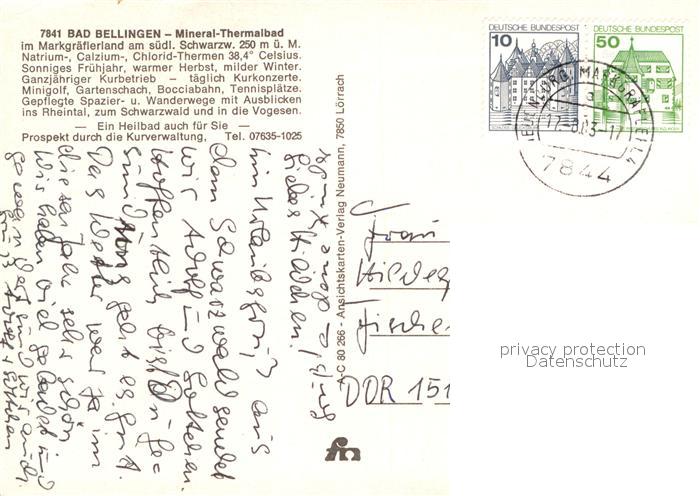 7841 BAD BELLINGEN – Mineral-Thermalbad
im Markgräflerland am südl. Schwarzw. 250 m ü. M.
Natrium-, Calzium-, Chlorid-Thermen 38,4° Celsius.
Sonniges Frühjahr, warmer Herbst, milder Winter.
Ganzjähriger Kurbetrieb – täglich Kurkonzerte.
Minigolf, Gartenschach, Bocciabahn, Tennisplätze.
Gepflegte Spazier- u. Wanderwege mit Ausblicken
ins Rheintal, zum Schwarzwald und in die Vogesen.
— Ein Heilbad auch für Sie —
Prospekt durch die Kurverwaltung, Tel. 07635-1025
DEUTSCHE BUNDESPOST
10
DEUTSCHE BUNDESPOST
50
7844
A-C 80 266 - Ansichtskarten-Verlag Neumann, 7850 Lörrach
Liebes Hildchen!
Ein Urlaubsgruß aus
dem Schwarzwald sendet
wir Adolf und
Hoffentlich bist Du ge-
sund. Uns geht es gut.
Das Wetter war ja im
diesem Jahr sehr schön
Wir haben viel gebadet und
gewandert
Frau
Fischer
DDR 151
privacy protection
Datenschutz